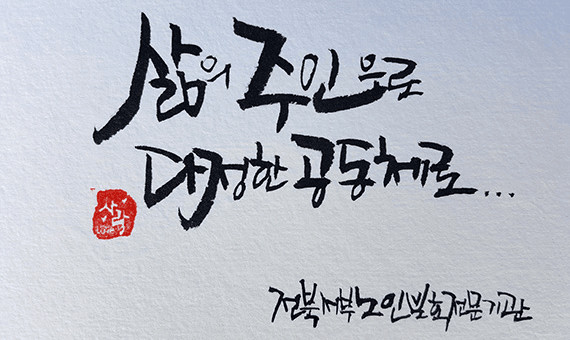 삶의 주인으로
다정한 공동체로...
전북서부노인보호전문기관